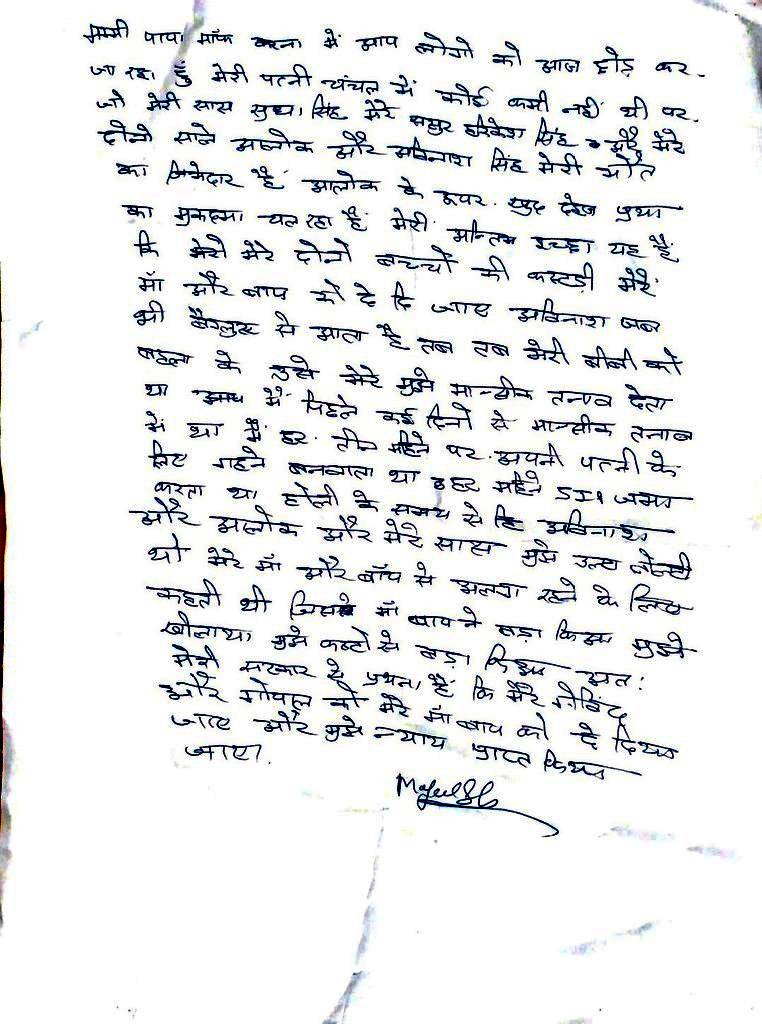 मम्मी पापा माँफ करना में आप लोगो को आज छोड़ कर
जा रहा हुँ मेरी पत्नी चंचल में कोई कमी नहीं थी पर
जो मेरी सास सुधा सिंह मेरे ससुर हरिकेश सिंह और मेरे
दोनो साले आलोक और अविनाश सिंह मेरी मौत
का जिमेदार है आलोक के ऊपर खुद दहेज प्रथा
का मुकदमा चल रहा है मेरी अन्तिम इच्छा यह है
कि मेरी मेरे दोनो बच्चचों की कस्टडी मेरे
माँ और बाप को दे दि जाए अविनाश जब
भी बैंग्लुरु से आता है तब तब मेरी बीबी को
बहला के उसे मेरे मुझे मान्सीक तनाव देता
था में पिछले कई दिनों से मान्सीक तनाव
में था मैं हर तीन महिने पर अपनी पत्नी के
लिए गहने बनवाता था हर महिने SIP जमा
करता था होली के समय से अविनाश
और आलोक और मेरे सास मुझे
थी मेरे माँ और बाँप से अलग रहने के लिए
कहती थी जिसने माँ बाप ने बड़ा किया मुझे
मुझे कष्टो से बड़ा किया अत:
मेरी सरकार से प्रथना है कि मेरे गोविंद
और गोपाल को मेरे माँ बाप को दे दिया
जाए और मुझे न्याय प्राप्त किया
जाए।